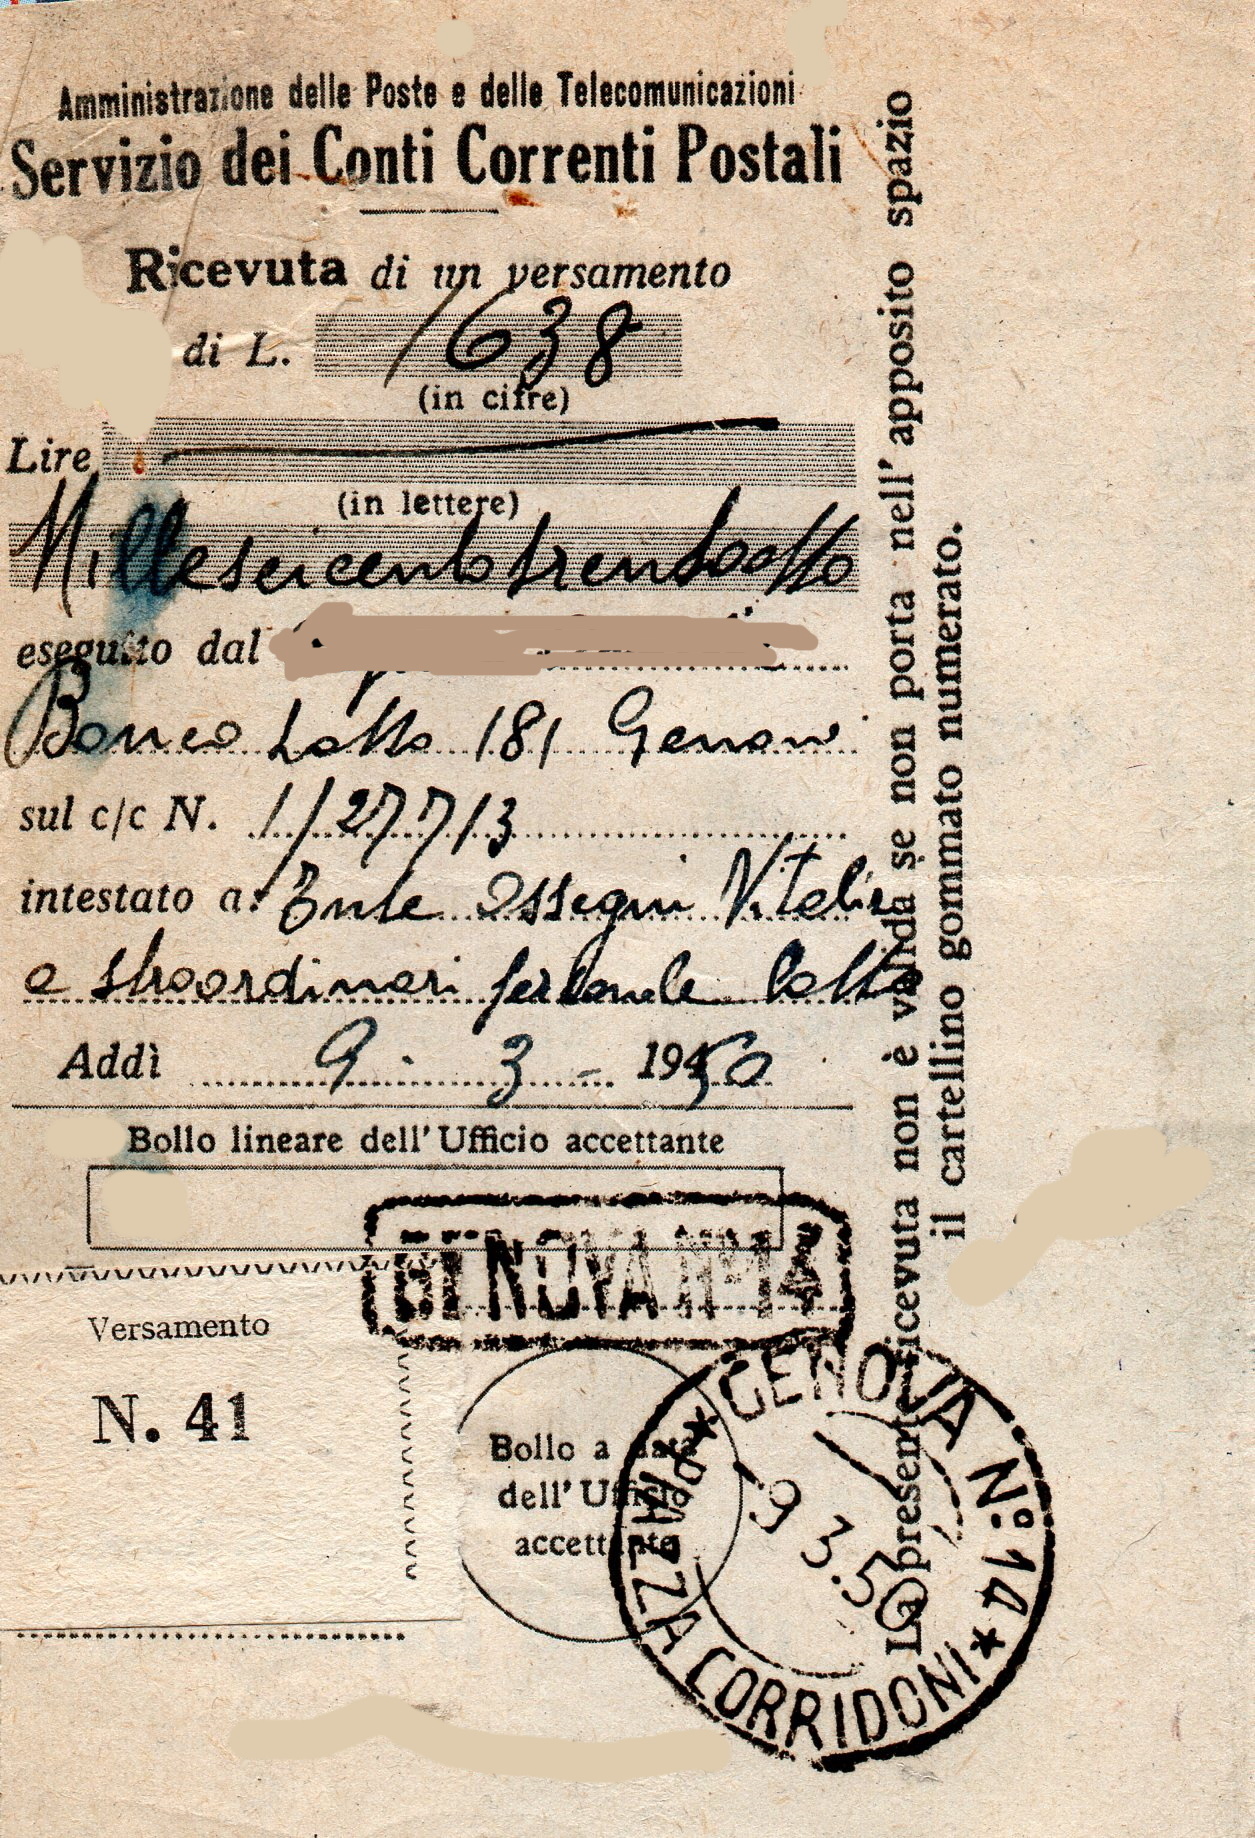 Amministrazione delle Poste e delle Telecomunicazioni
Servizio dei Conti Correnti Postali
Ricevuta di un versamento
di L. 1638
(in cifre)
Lire
(in lettere)
Milleseicentotrentaotto
eseguito dal
Banco Lotto 181 Genova
sul c/c N. 1/27713
intestato a: Ente Assegni Vitalizi
e straordinari personale Lotto
Addì 9 - 3 - 1950
Bollo lineare dell'Ufficio accettante
GENOVA Nº 14
Versamento
N. 41
Bollo a data
dell'Ufficio
accettante
GENOVA Nº. 14
9 3.50
PIAZZA CORRIDONI
La presente ricevuta non è valida se non porta nell'apposito spazio
il cartellino gommato numerato.